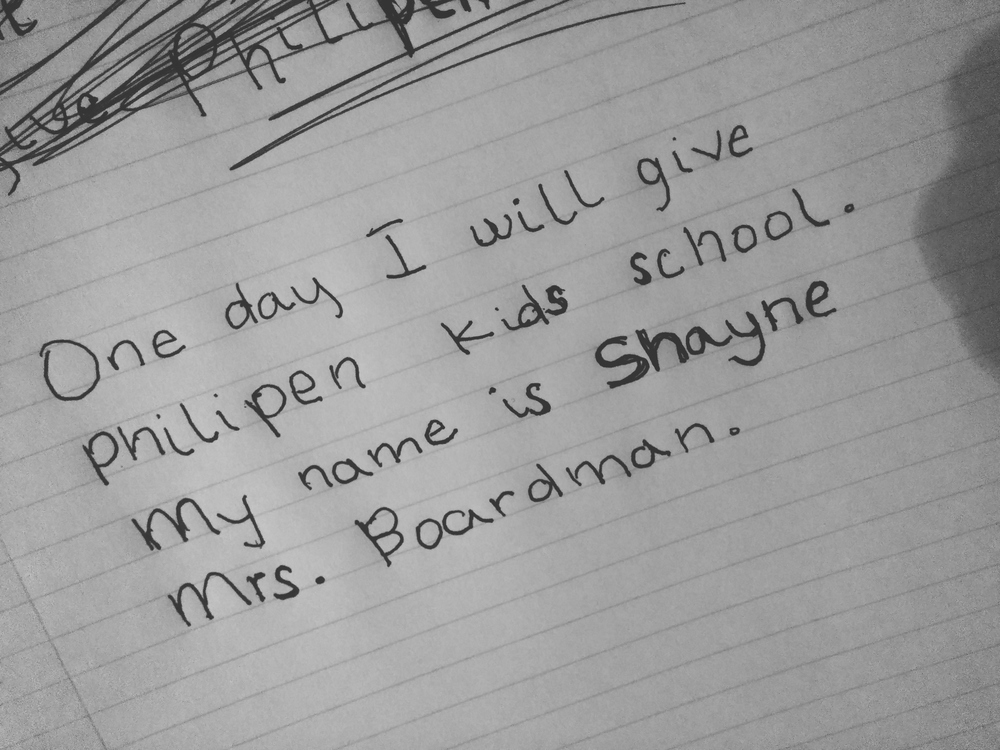 give Philipen
One day I will give
philipen kids school.
My name is Shayne
Mrs. Boardman.